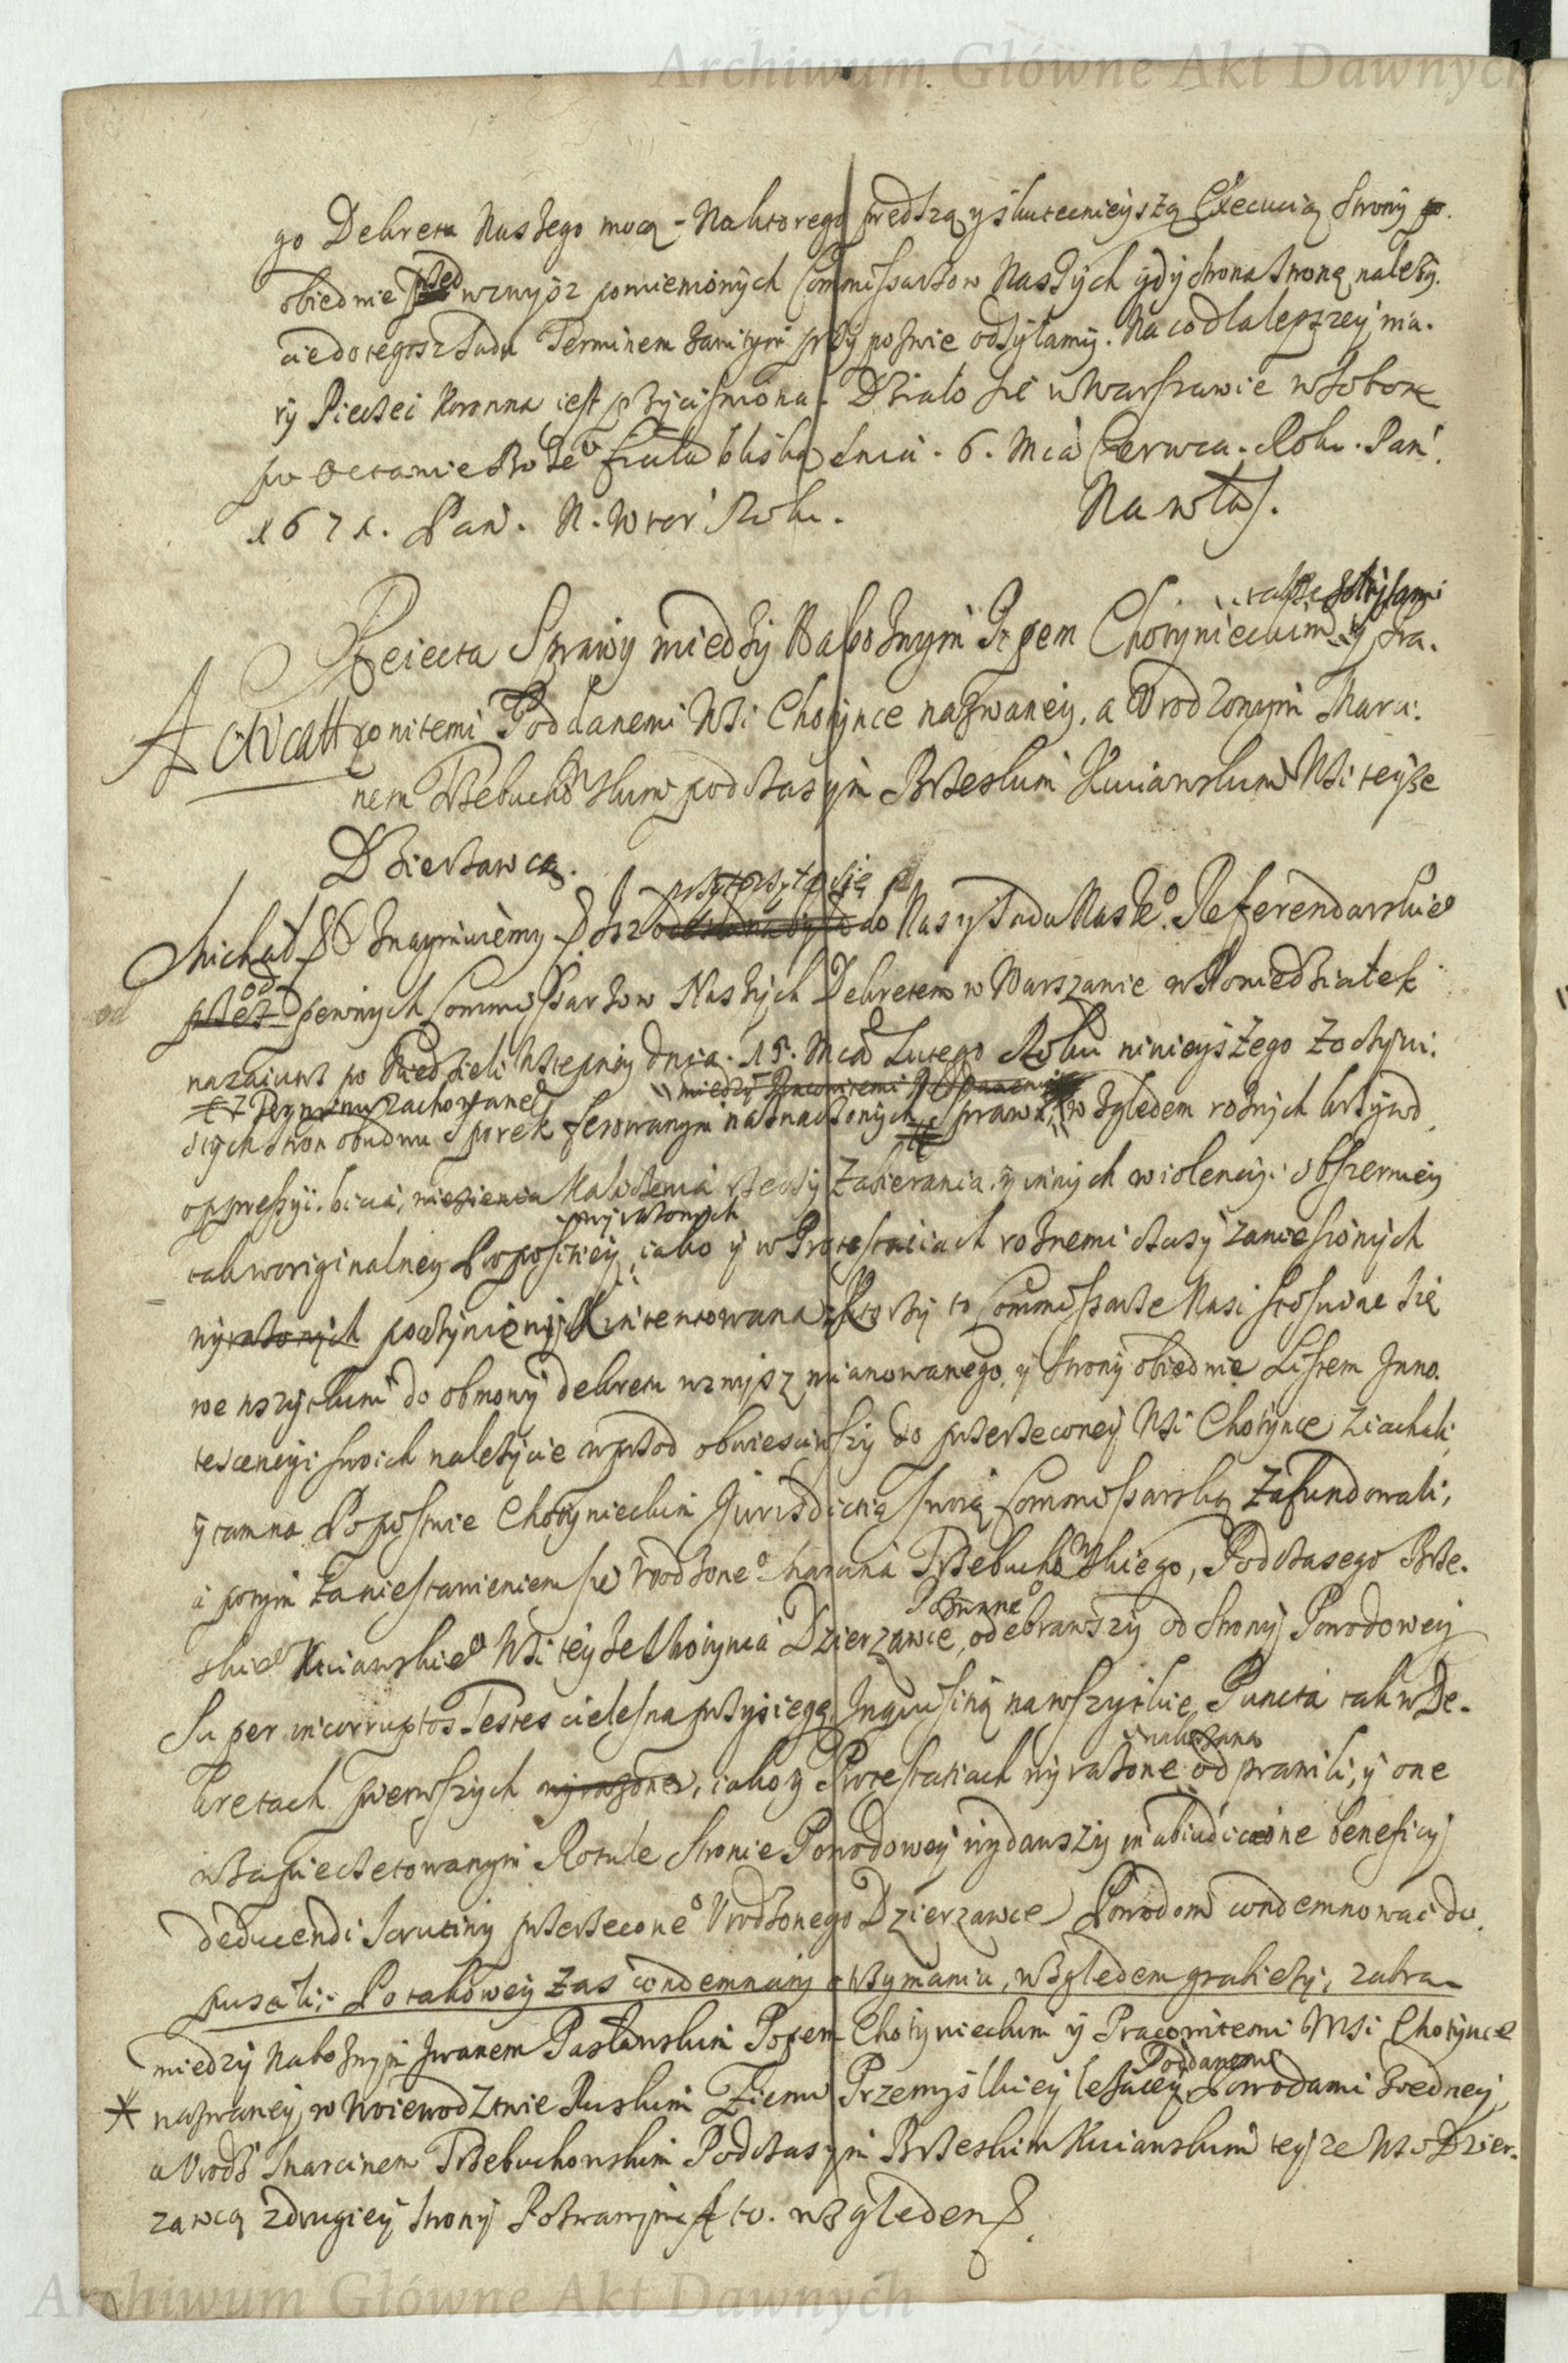 Archiwum Główne Akt Dawnych
go Dekretu Naszego mocą. Na ktorego prędszą y skutecznieyszą Executią strony
obiedwie przed wzwysz pomienionych Commissarzow Naszych gdy strona stronę należy.
cie do tegosz Sądu Terminem zawitym przy pozwie odsyłamy. Na co dla lepszey wia.
ry Pieczęć Koronna iest przyciśniona. Działo się w Warszawie w Sobotę
po Oktawie Boże° Ciała bliską dnia. 6. Mca Czerwca. Roku. Pań.
1671. Pan. N. Wtor Roku.
Na włas.
także Strylami
Reiecta Sprawy między Nabożnym Popem Chotynieckim y Pra.
Advocatt
cowitemi Poddanemi Wsi Chotynce nazwaney, a Urodzonym Marci.
nem Trzebuchowskim podczaszym Brzeskim Kuiawskim Wsi teyże
Dzierżawcą.
przytoczyła się
Michał etc Znaymuiemy Isz do Nas y Sądu Nasze° Referendarskie°
od
przez pewnych Commissarzow Naszych Dekretem w Warszawie w Poniedziałek
nazaiutrz po Niedzieli Wstępney dnia. 15. Mca Lutego Roku ninieyszego zoczywi.
między Pracowitemi Poddanemi
stych stron obudwu Sporek ferowanym naznaczonych Sprawa, względem rożnych krzywd
oppressyi. bicia, więzienia Kaliczenia rzeczy zabierania. y innych wiolencyi obszerniey
wyrażonych
tak w originalney Propositiey, iako y w Protestaciach rożnemi czasy zaniesionych
wyrażonych poczynionych intentowana. Ktorzy to Commissarze Nasi stosuiąc się
we wszytkim do obmowy dekretu wzwysz mianowanego, y strony obiedwie Listem Inno.
tescencyi swoich należycie wprzod obwieściwszy do przerzeczoney Wsi Chotynce ziachali,
y tam na Popostwie Chotynieckim Jurisdictią swoię Commissarską zafundowali,
a potym za niestawieniem się Urodzone° Marcina Trzebuchowskiego, Podczaszego Brze.
Pozwane°
skie° Kuiawskie° Wsi teyże Chotynca Dzierzawce, odebrawszy od strony Powodowey
Super incorruptos Testes cielesną przysięgę, Inquisitią na wszytkie Puncta tak w De.
nakazaną
kretach pierwszych wyrażone, iako y Protestatiach wyrażone odprawili, y one
w zapieczętowanym Rotule stronie Powodowey wydawszy in abiudicatione beneficy
deducendi Scrutiny przerzeczone° Urodzonego Dzierzawce Powodom condemnować do.
puścili. Po takowey zaś condemnaty otrzymaniu, względem grabieży, zabra-
między Nabożnym Iwanem Pasławskim Popem Chotynieckim y Pracowitemi Wsi Chotynce
Poddanemi
* nazwaney, w Woiewodztwie Ruskim Ziemi Przemyślkiey leżącey Powodami z iedney,
a Urodz Marcinem Trzebuchowskim Podczaszym Brzeskim Kuiawskim teyże Wsi Dzier.
zawcą z drugiey strony Pozwanym to. względem
Archiwum Główne Akt Dawnych